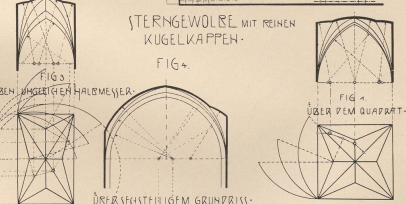 STERNGEWÖLBE MIT REINEN
KUGELKAPPEN.
FIG 4.
FIG 3
BEN, UNGLEICHEN HALBMESSER.
FIG 1.
ÜBER DEM QUADRAT.
ÜBER SECHSTEILIGEM GRUNDRISS.